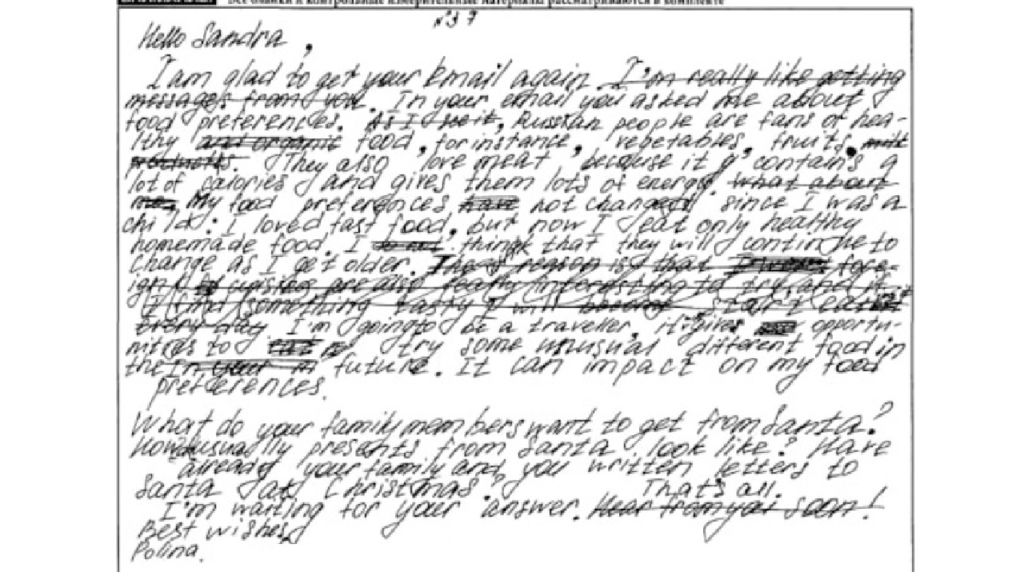 Все бланки и контрольные измерительные материалы рассматриваются в комплекте
№37
Hello Sandra,
I am glad to get your Email again. I'm really like getting
messages from you. In your email you asked me about
food preferences. As I see it, Russian people are fans of hea-
lthy and organic food, for instance, vegetables, fruit, milk
products. They also love meat, because it contains a
lot of calories and gives them lots of energy. What about
me, My food preferences have not changed since I was a
child: I loved fast food, but now I eat only healthy
homemade food. I think that they will continue to
change as I get older. The reason is that fore-
ign cuisines are also really interesting to try, and if
I find something tasty I will start eat
every day I'm going to be a traveller. It gives opportu-
nities to try some unusual different food in
the In future. It can impact on my food
preferences.
What do your family members want to get from Santa?
How usually presents from Santa look like? Have
already your family and you written letters to
Santa at Christmas?
That's all.
I'm waiting for your answer. Hear from you soon!
Best wishes,
Polina.